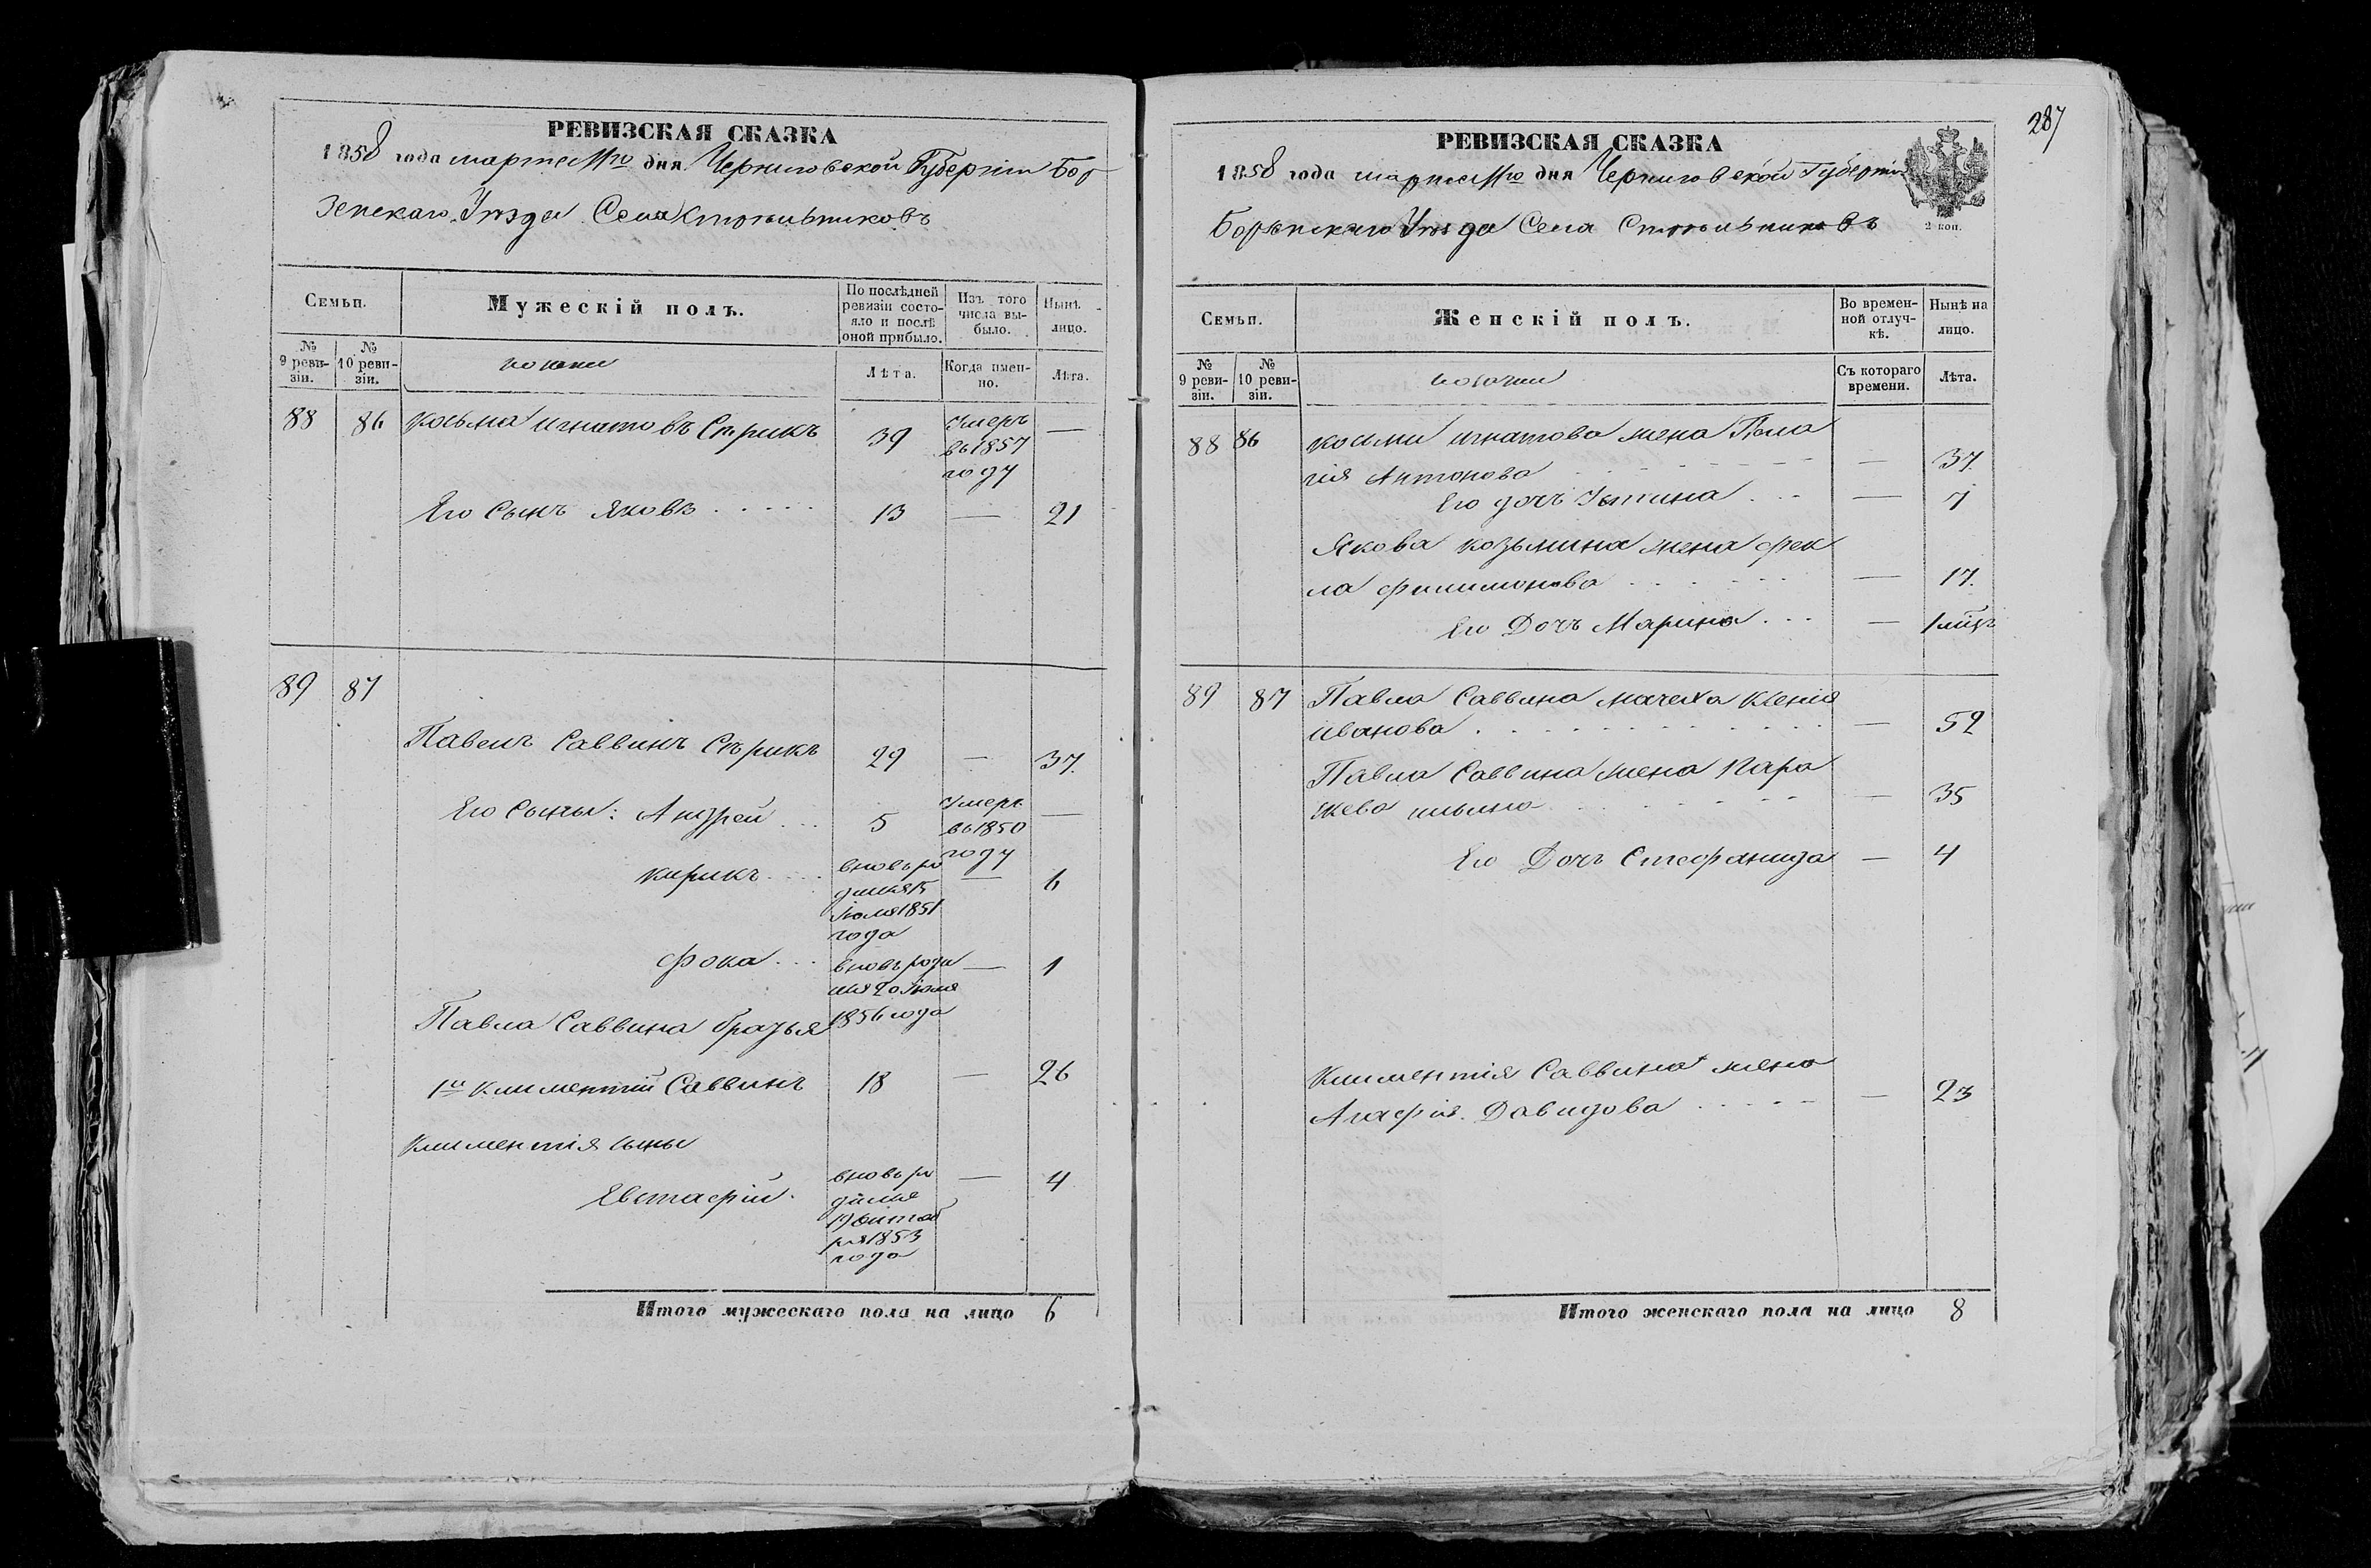 РЕВИЗСКАЯ СКАЗКА
1858 года марта 11го дня Черниговской Губернiи Бор
зенскаго Уѣзда Села
Семьи.
Мужескiй полъ.
По послѣдней ревизiи состояло и послѣ оной прибыло.
Изъ того числа выбыло.
Нынѣ лицо.
№ 9 ревизiи.
№ 10 ревизiи.
Лѣта.
Когда именно.
Лѣта.
88 86 Косьма Игнатовъ Стрикъ 39 Умеръ въ 1857 году —
Его Сынъ Яковъ 13 — 21
89 87
Павелъ Саввинъ Стрикъ 29 — 37.
Его Сыны: Андрей 5 Умеръ въ 1850 году —
Кирикъ вновь ро
дился 15 — 6
Iюля 1851
года
Фока вновь роди — 1
лся 20 Iюля
Павла Саввина братья 1856 года
1й Климентiй Саввинъ 18 — 26
Климентiя сыны
Евстафiй. вновь ро — 4
дился
19 Сентяб
ря 1853
года
Итого мужескаго пола на лицо 6
287
РЕВИЗСКАЯ СКАЗКА
1858 года марта 11го дня Черниговской Губернiи
Борзенскаго Уѣзда Села
2 коп.
Семьи.
Женскiй полъ.
Во временной отлучкѣ.
Нынѣ на лицо.
№ 9 ревизiи.
№ 10 ревизiи.
Съ котораго времени.
Лѣта.
88 86 Косьми Игнатова жена Пела
гiя Антонова — 37.
Его дочь Устина — 7
Якова Козьмина жена Фек
ла Филимонова — 17.
Его Дочь Марина — 1 мѣц.
89 87 Павла Саввина мачеха Ксенiя
Иванова — 52
Павла Саввина жена Пара
скева Ильина — 35
Его Дочь Стефанида — 4
Климентiя Саввина жена
Агафiя Давидова — 23
Итого женскаго пола на лицо 8